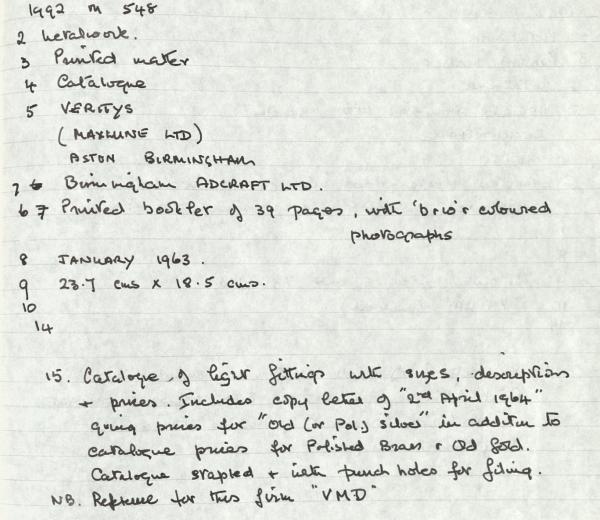 1992 m 548
2 Metalwork.
3 Printed matter
4 Catalogue
5 VERITYS
(MAXLUME LTD)
ASTON BIRMINGHAM
7 Birmingham ADCRAFT LTD.
6 7 Printed booklet of 39 pages, with b+w & coloured
photographs
8 JANUARY 1963.
9 23.7 cms x 18.5 cms.
10
14
15. Catalogue of light fittings with sizes, descriptions
+ prices. Includes copy letter of "2nd April 1964"
giving prices for "Old (or Pol.) silver" in addition to
catalogue prices for Polished Brass & Old Gold.
Catalogue stapled + with punch holes for filing.
NB. Reference for this firm "VMD"